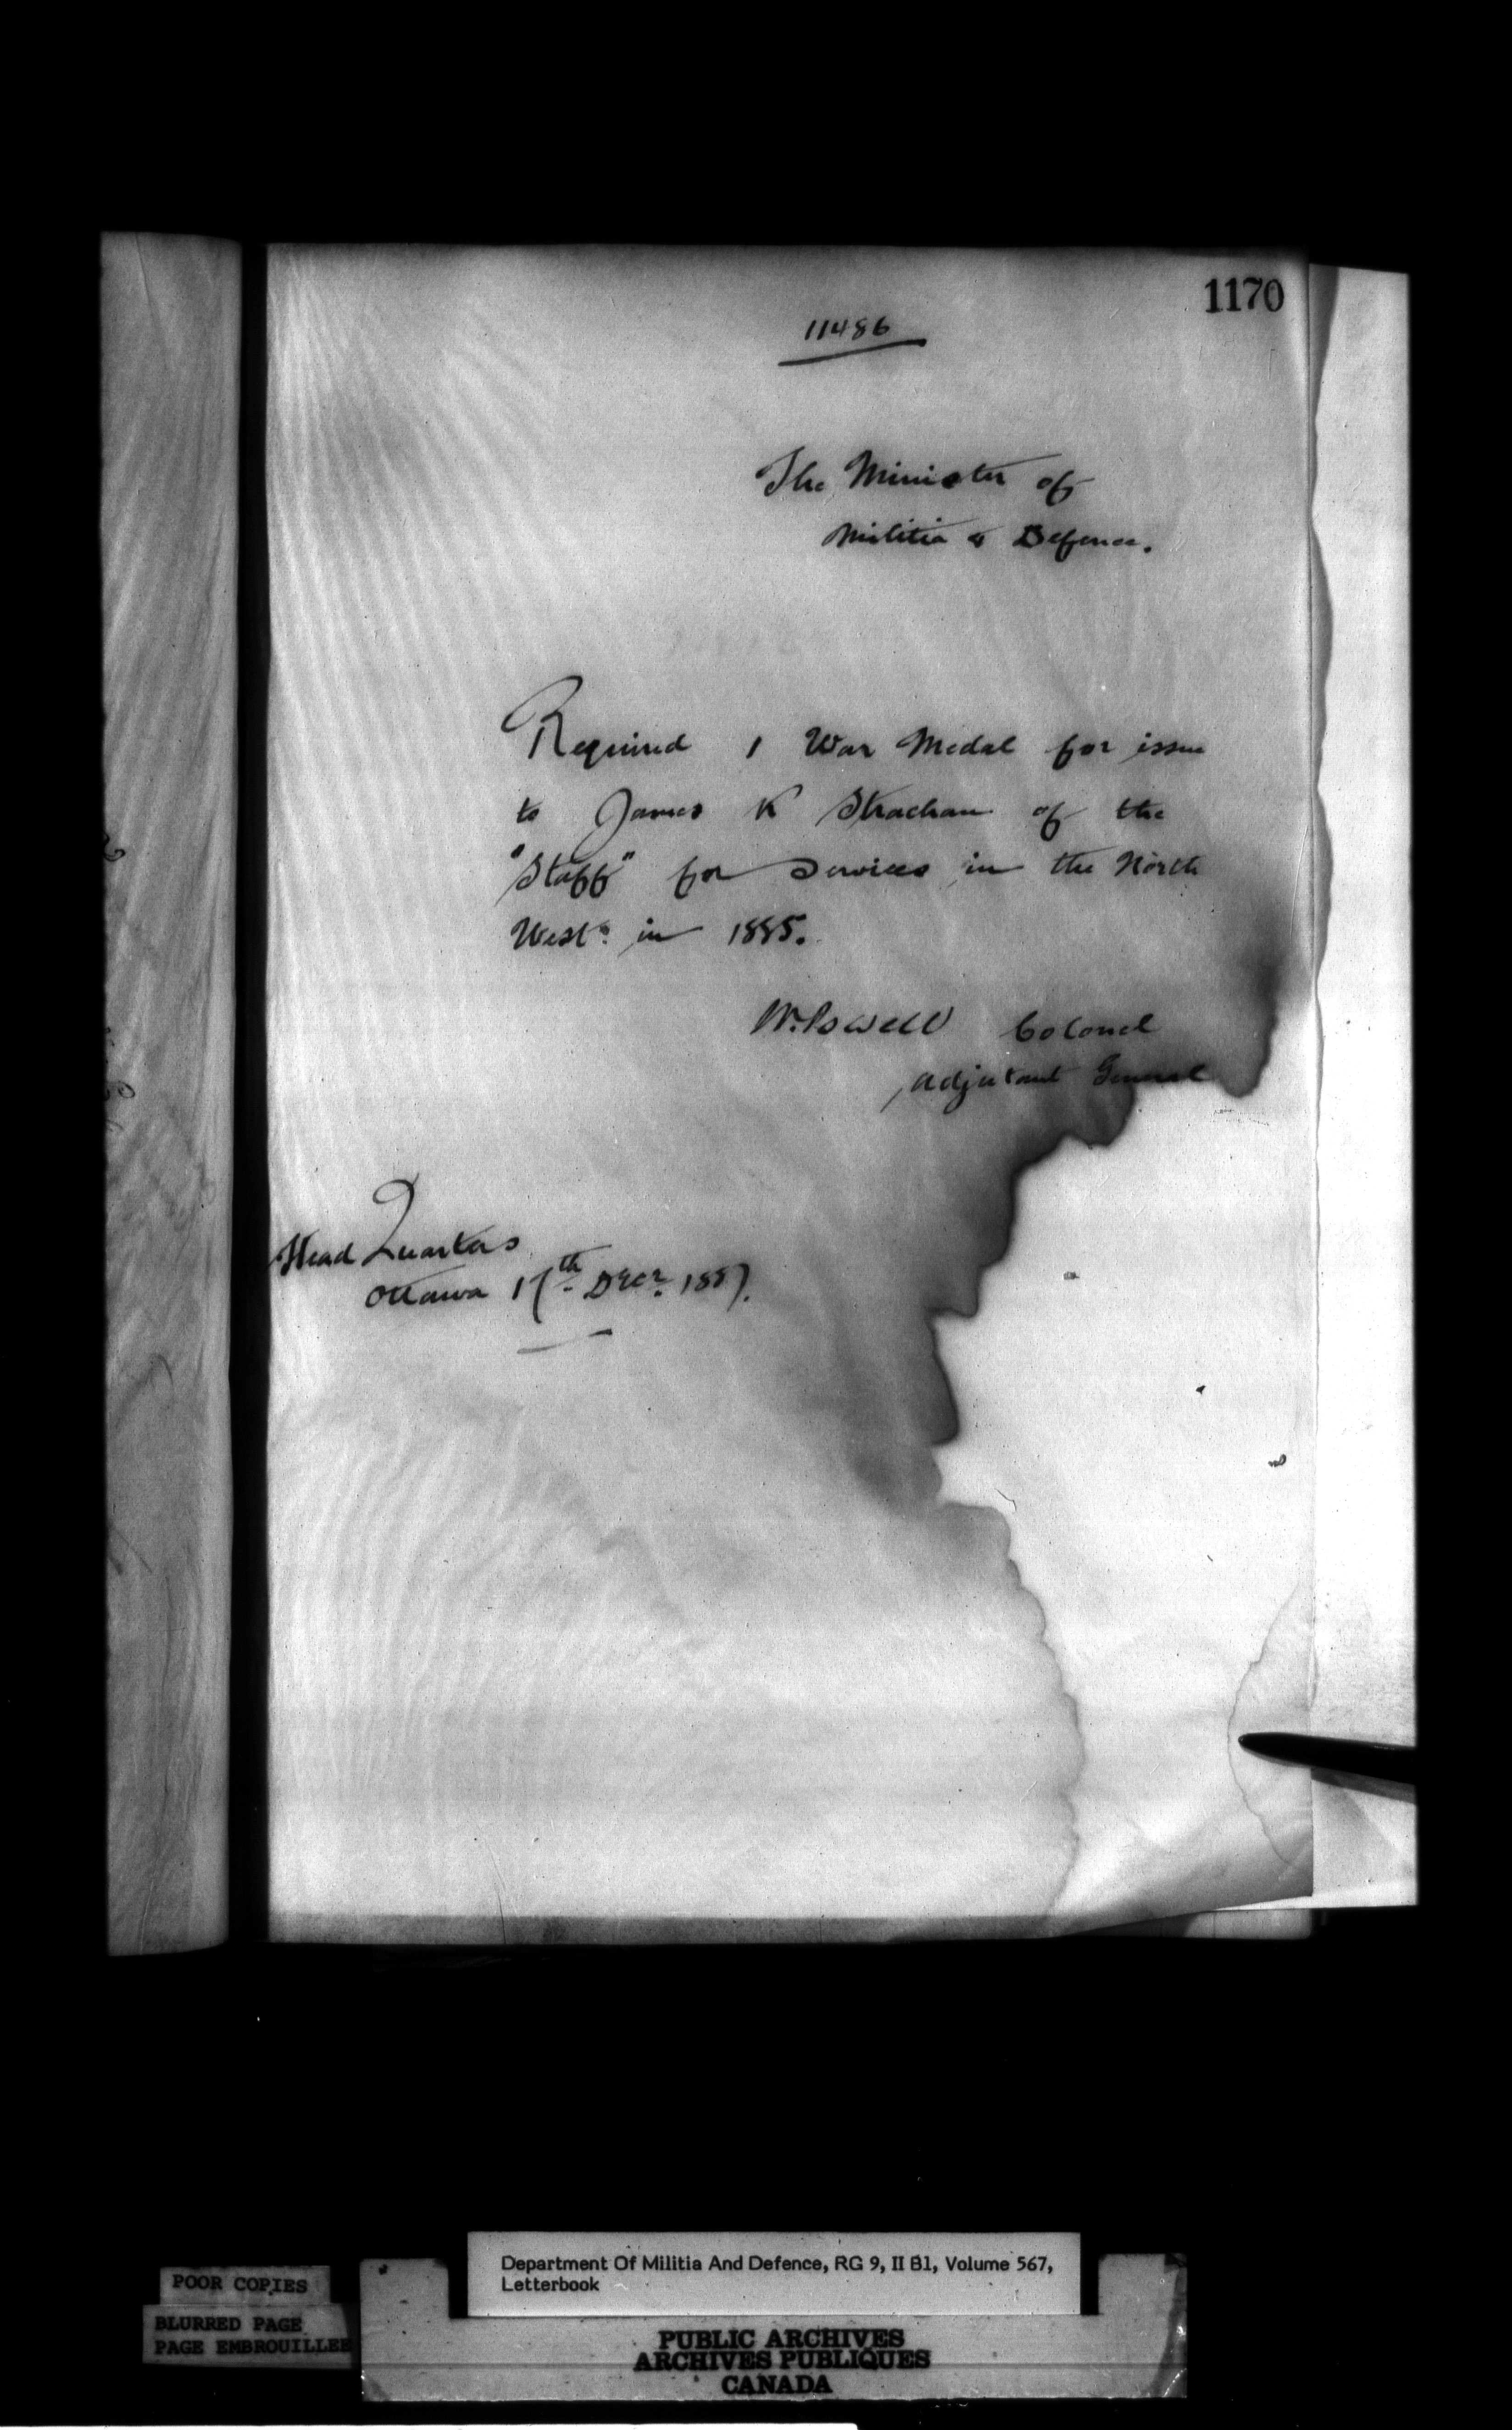 1170
11486
The Minister of
Militia & Defence.
Required 1 War Medal for issue
to James K Strachan of the
"Staff" for Services in the North
West in 1885.
W. Powell Colonel
Adjutant General
Head Quarters
Ottawa 17th Decr. 1887.
Department Of Militia And Defence, RG 9, II B1, Volume 567,
Letterbook
POOR COPIES
BLURRED PAGE
PAGE EMBROUILLEE
PUBLIC ARCHIVES
ARCHIVES PUBLIQUES
CANADA